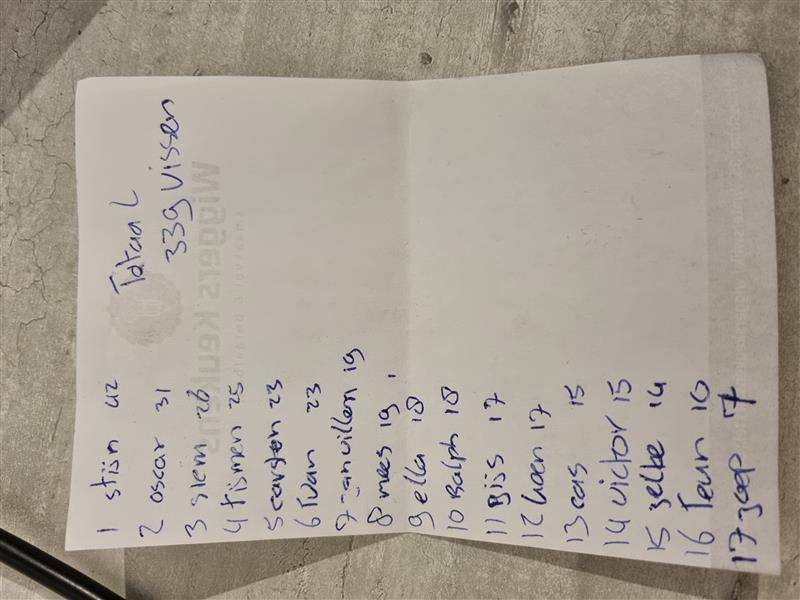 Totaal
339 vissen
1 stijn 42
2 oscar 31
3 siem 26
4 tijmen 25
5 carsten 23
6 Tvan 23
7 janwillem 19
8 mees 19
9 ella 18
10 Ralph 18
11 Gijs 17
12 Koen 17
13 cas 15
14 victor 15
15 jelte 14
16 Teun 10
17 joep 7
Wiggers Keukens